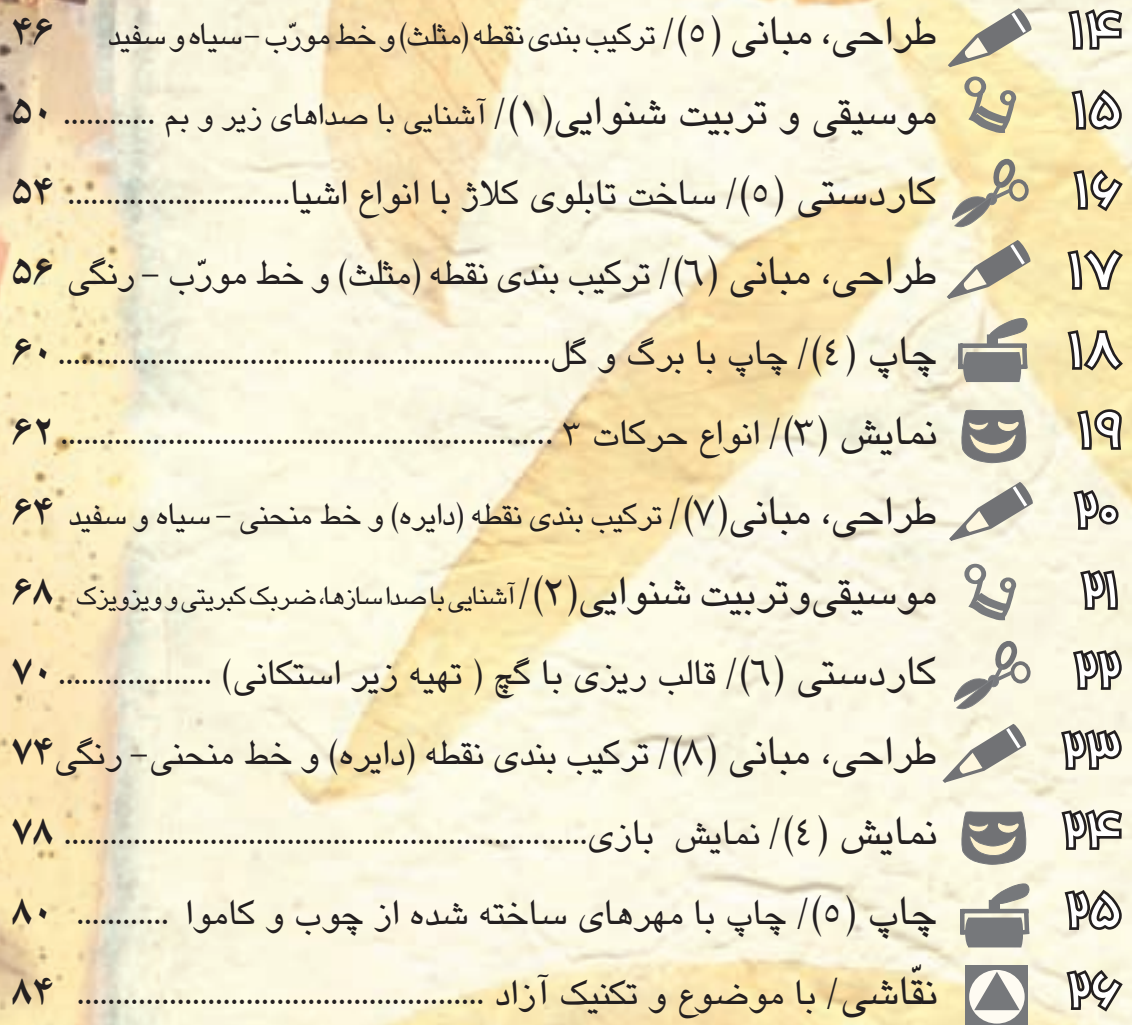 ۱۴ طراحی، مبانی (٥)/ ترکیب بندی نقطه (مثلث) و خط مورّب – سیاه و سفید ۴۶
۱۵ موسیقی و تربیت شنوایی(١)/ آشنایی با صداهای زیر و بم ............ ۵۰
۱۶ کاردستی (٥)/ ساخت تابلوی کلاژ با انواع اشیا............................ ۵۴
۱۷ طراحی، مبانی (٦)/ ترکیب بندی نقطه (مثلث) و خط مورّب – رنگی ۵۶
۱۸ چاپ (٤)/ چاپ با برگ و گل............................................................ ۶۰
۱۹ نمایش (٣)/ انواع حرکات ۳ ............................................................ ۶۲
۲۰ طراحی، مبانی(٧)/ ترکیب بندی نقطه (دایره) و خط منحنی – سیاه و سفید ۶۴
۲۱ موسیقی‌وتربیت شنوایی(٢)/ آشنایی با صدا سازها، ضربک کبریتی و ویزویزک ۶۸
۲۲ کاردستی (٦)/ قالب ریزی با گچ ( تهیه زیر استکانی) ................... ۷۰
۲۳ طراحی، مبانی (٨)/ ترکیب بندی نقطه (دایره) و خط منحنی– رنگی ۷۴
۲۴ نمایش (٤)/ نمایش بازی................................................................ ۷۸
۲۵ چاپ (٥)/ چاپ با مهرهای ساخته شده از چوب و کاموا ............ ۸۰
۲۶ نقّاشی/ با موضوع و تکنیک آزاد .................................................. ۸۴